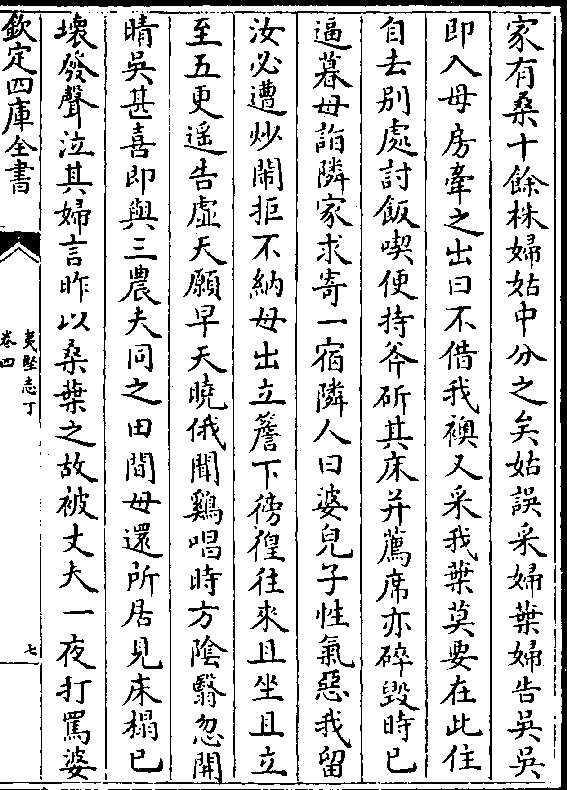 家有桑十餘株婦姑中分之矣姑誤采婦葉婦告吳吳
即入母房牽之出曰不借我襖又采我葉莫要在此住
自去別處討飯喫便持斧斫其床并薦席亦碎毀時已
逼暮母詣隣家求寄一宿隣人曰婆兒子性氣惡我留
汝必遭炒鬧拒不納母出立簷下徬徨往來且坐且立
至五更遥告虛天願早天曉俄聞鷄唱時方陰翳忽開
晴吳甚喜即與三農夫同之田間母還所居見床榻已
壞發聲泣其婦言昨以桑葉之故被丈夫一夜打罵婆
欽定四庫全書
夷堅志丁
卷四
七